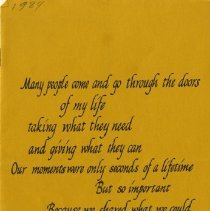 1989
Many people come and go through the doors
of my life
taking what they need
and giving what they can
Our moments were only seconds of a lifetime
But so important
Because we shared what we could